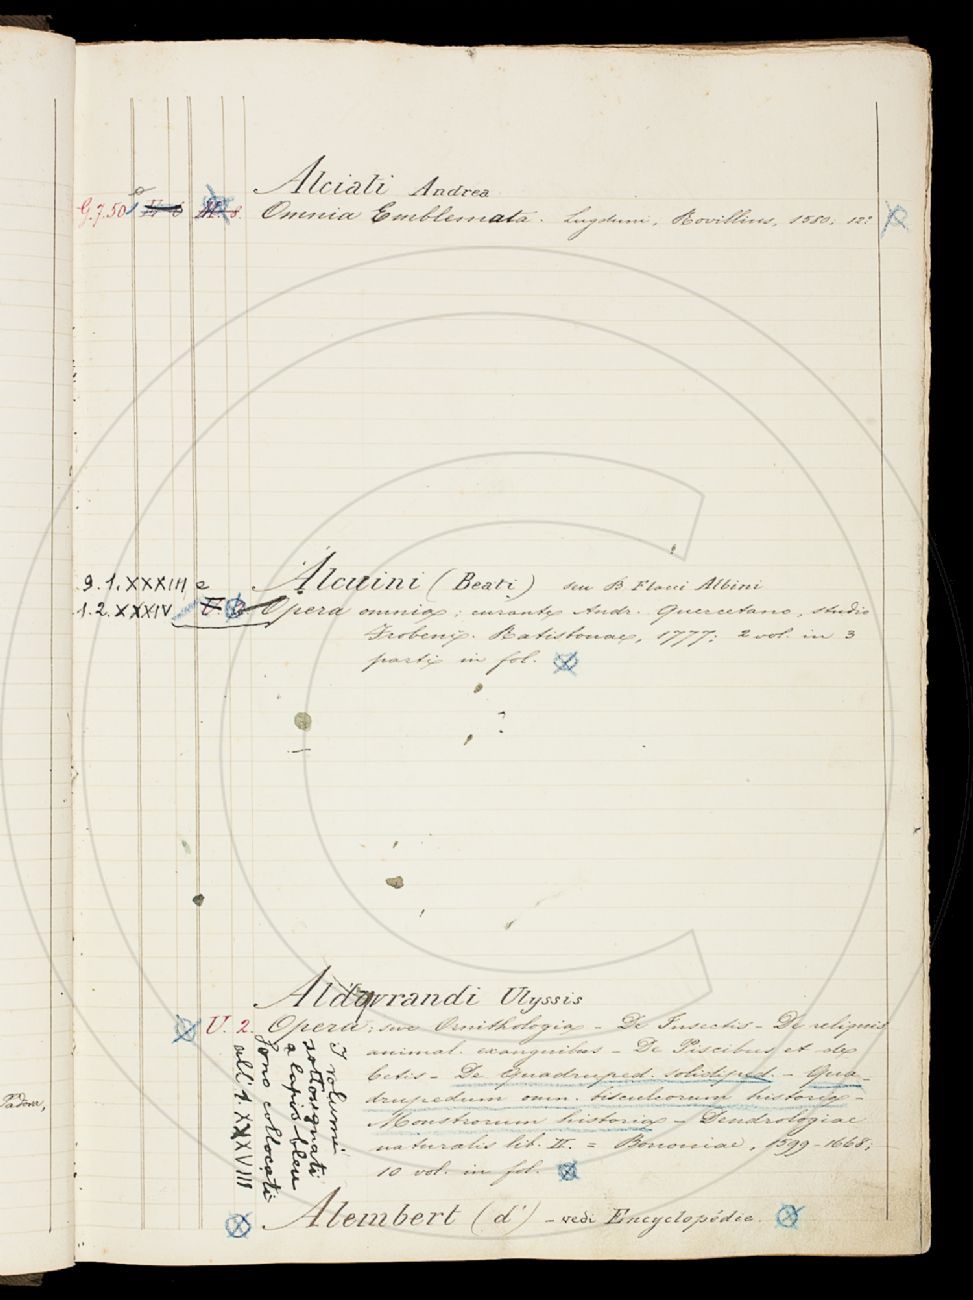 Alciati Andrea
G.7.50 M. 8. Omnia Emblemata. Lugduni, Rovillius, 1580; 12º
9.1.XXXIII e Alcuini (Beati) seu B Flacci Albini
1.2.XXXIV Opera omnia; curante Andr. Quercetano, studio
Frobenii. Ratisbonae, 1777; 2 vol. in 3
parti in fol.
Aldovrandi Ulyssis
U. 2. Opera; sive Ornithologia – De Insectis – De reliquis
animal. exanguibus – De Piscibus et de
Cetis – De quadruped. solidiped. – Qua-
drupedum omn. bisulcorum historia –
Monstrorum historia – Dendrologiae
naturalis lib. II. = Bononiae, 1599-1668;
10 vol. in fol.
I volumi
sottosegnati
a lapis bleu
sono collocati
all' 1. XXXVIII
Padova,
Alembert (d') – vedi Encyclopédie.